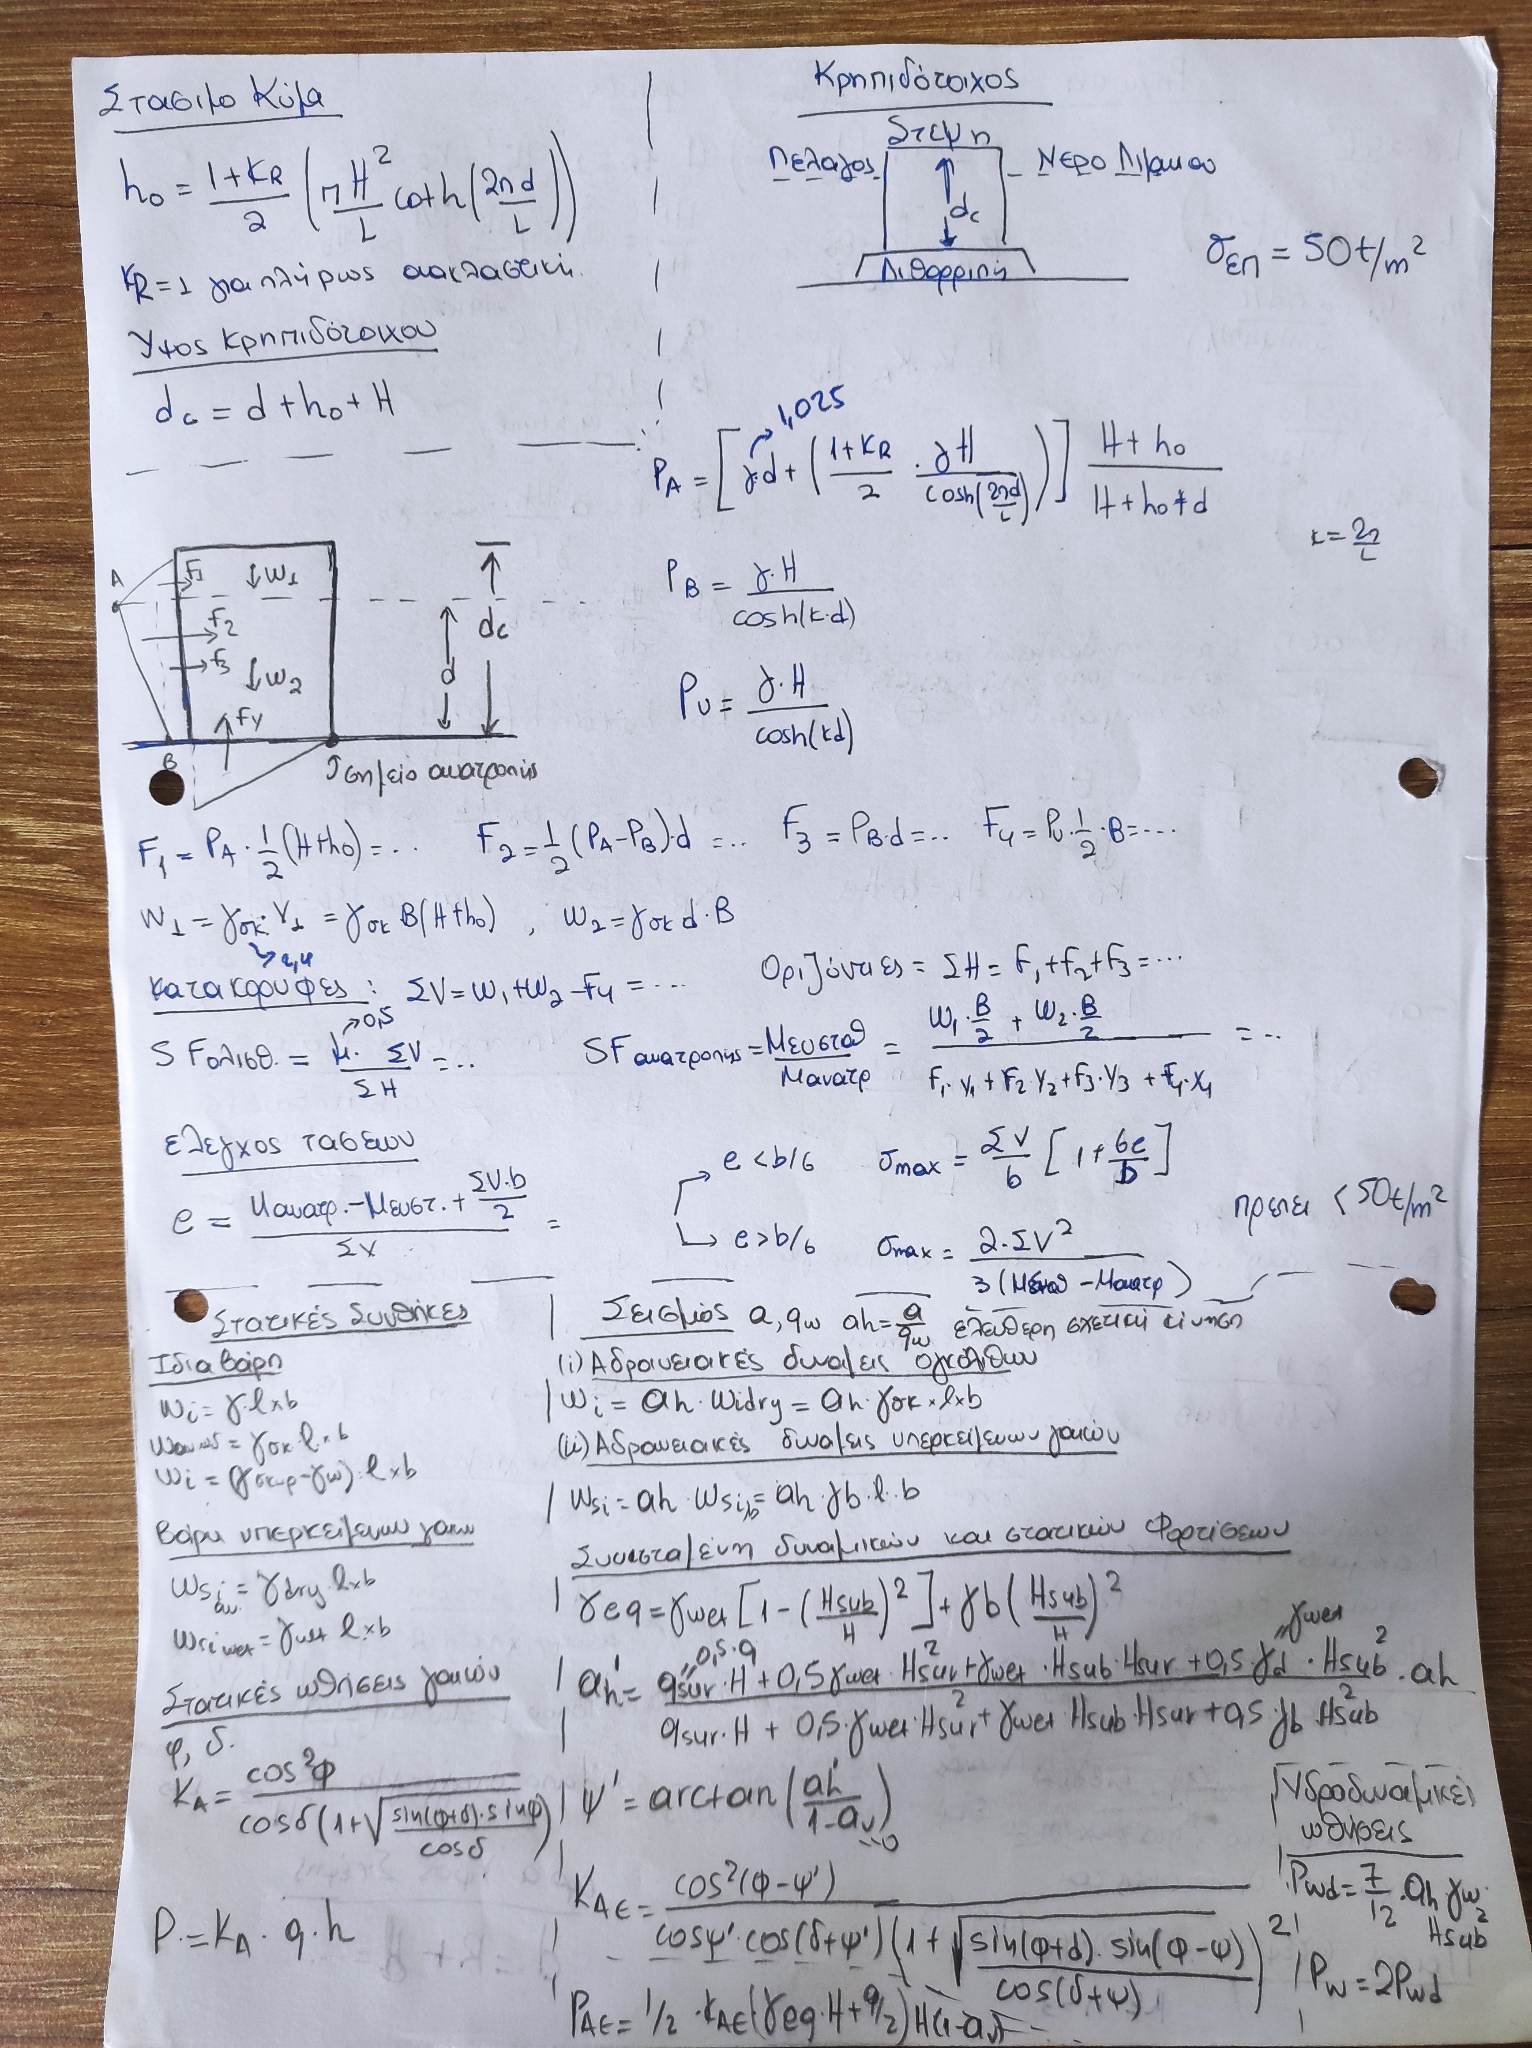 Στασιμο Κύμα
h₀ = (1+K_R)/2 (πH²/L coth(2πd/L))
K_R = 1 για πλήρως ανακλαστική.
Υψος κρηπιδότοιχου
d_c = d + h₀ + H
Κρηπιδότοιχος
Στεψη
Πελαγος
Νερο Λιμανιου
d_c
Λιθορριπή
σ_επ = 50t/m²
1,025
P_A = [γ·d + ((1+K_R)/2 · γH/cosh(2πd/L))] (H+h₀)/(H+h₀+d)
κ = 2π/L
P_B = γ·H/cosh(k·d)
P_U = γ·H/cosh(kd)
A
F1
↓W1
F2
F3
↓W2
F4
d
d_c
B
σημείο ανατροπής
F₁ = P_A · 1/2 (H+h₀) = ...
F₂ = 1/2 (P_A - P_B)·d = ...
F₃ = P_B·d = ...
F₄ = P_U · 1/2 · B = ...
W₁ = γσκ · V₁ = γσκ B(H+h₀) , W₂ = γσκ d·B
2,4
κατακορυφες : ΣV = W₁ + W₂ - F4 = ...
Οριζόντιες = ΣH = F₁ + F₂ + F₃ = ...
0,5
SFολισθ. = μ· ΣV/ΣH = ...
SFανατροπής = Μευσταθ/Μανατρ = (W₁·B/2 + W₂·B/2)/(F₁·y₁ + F₂·y₂ + F₃·y₃ + F₄·x₄) = ...
ελεγχος τασεων
e = (Μανατρ. - Μευστ. + ΣV·b/2)/ΣV =
e < b/6 σmax = ΣV/b [1 + 6e/b]
e > b/6 σmax = 2·ΣV²/3(Μευσταθ - Μανατρ)
πρεπει < 50t/m²
Στατικές Συνθήκες
Ιδια βαρη
Wi = γ·l×b
= γσκ·l×b
Wi = (γσκυρ - γw)·l×b
Βάρη υπερκείμενων γαιων
Wsi = γdry·l×b
Wsi wet = γwet l×b
Στατικές ωθήσεις γαιών
φ, δ.
K_A = cos²φ/cosδ(1+√(sin(φ+δ)·sinφ/cosδ))
P = K_A · q·h
Σεισμός a, qw ah = a/qw ελευθερη σχετική κίνηση
(i) Αδρανειακές δυναμεις ογκόλιθων
Wi = ah · Widry = ah·γσκ×l×b
(ii) Αδρανειακές δυναμεις υπερκείμενων γαιών
Wsi = ah·Wsi,b = ah·γb·l·b
Συνισταμένη δυναμικών και στατικών Φορτίσεων
γeq = γwet [1 - (Hsub/H)²] + γb (Hsub/H)²
0,5·q
"γwet
ah' = (qsur·H + 0,5γwet·Hsur² + γwet·Hsub·Hsur + 0,5·γd·Hsub²)/(qsur·H + 0,5·γwet·Hsur² + γwet Hsub·Hsur + 0,5 γb Hsub²) · ah
ψ' = arctan (ah'/(1-av))
=0
K_AE = cos²(φ-ψ')/cosψ'·cos(δ+ψ')(1+√(sin(φ+δ)·sin(φ-ψ)/cos(δ+ψ)))²
P_AE = 1/2 ·K_AE(γeq·H + q/2)H(1-av)
Υδροδυναμικές
ωθησεις
Pwd = 7/12 · ah γw·Hsub²
Pw = 2Pwd